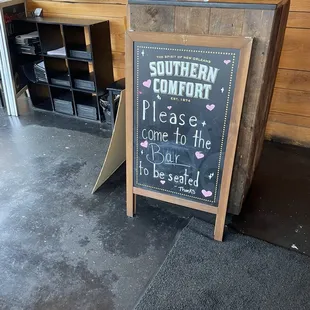 THE SPIRIT OF NEW ORLEANS
SOUTHERN
COMFORT
EST. 1874
Please
come to the
Bar
to be seated
Thanks